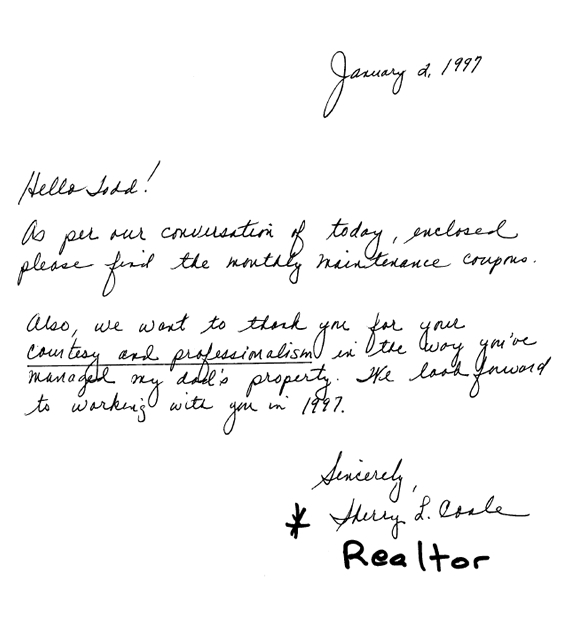 January 2, 1997
Hello Todd!
As per our conversation of today, enclosed
please find the monthly maintenance coupons.
Also, we want to thank you for your
courtesy and professionalism in the way you've
managed my dad's property. We look forward
to working with you in 1997.
Sincerely,
* Sherry L.
Realtor